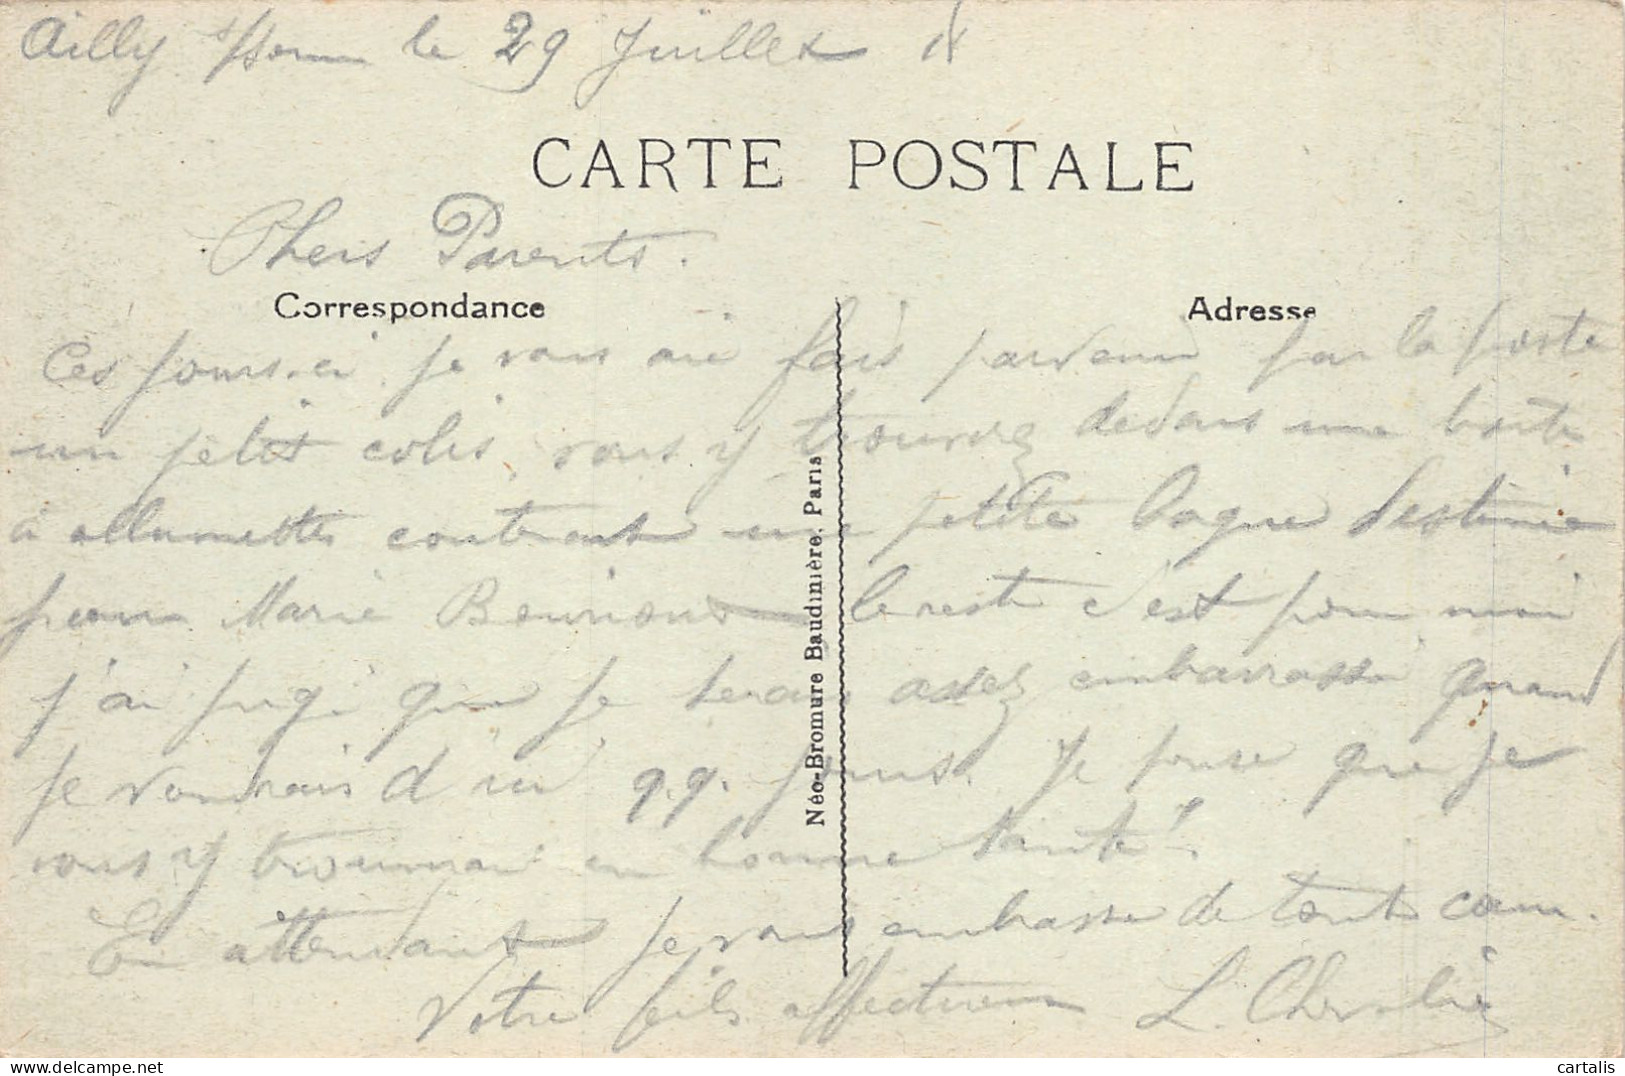 Ailly s/Somme le 29 Juillet 18
CARTE POSTALE
Chers Parents.
Correspondance
Adresse
Ces jours-ci je vous ai fais parvenir par la poste
un petit colis, vous y trouverez dedans une boite
à allumettes contenant une petite bague destinée
pour Marie le reste c'est pour moi
j'ai jugé que je serais assez embarrassé quand
je viendrais d'ici q.q. jours. Je pense que je
vous y trouverai en bonne santé.
En attendant je vous embrasse de tout cœur.
Votre fils affectueux L. Chevalier
Néo-Bromure Baudinière. Paris
cartalis